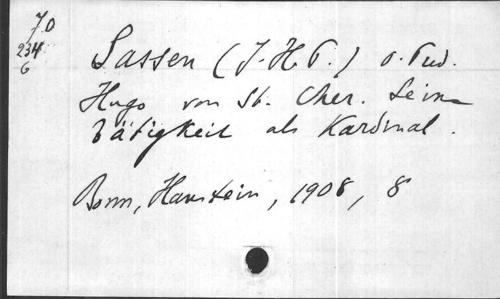 70
234
6
Sassen (J. H. T.) o. Pred.
Hugo von St. Cher. Seine
Tätigkeit als Kardinal.
Bonn, Hanstein, 1908, 8